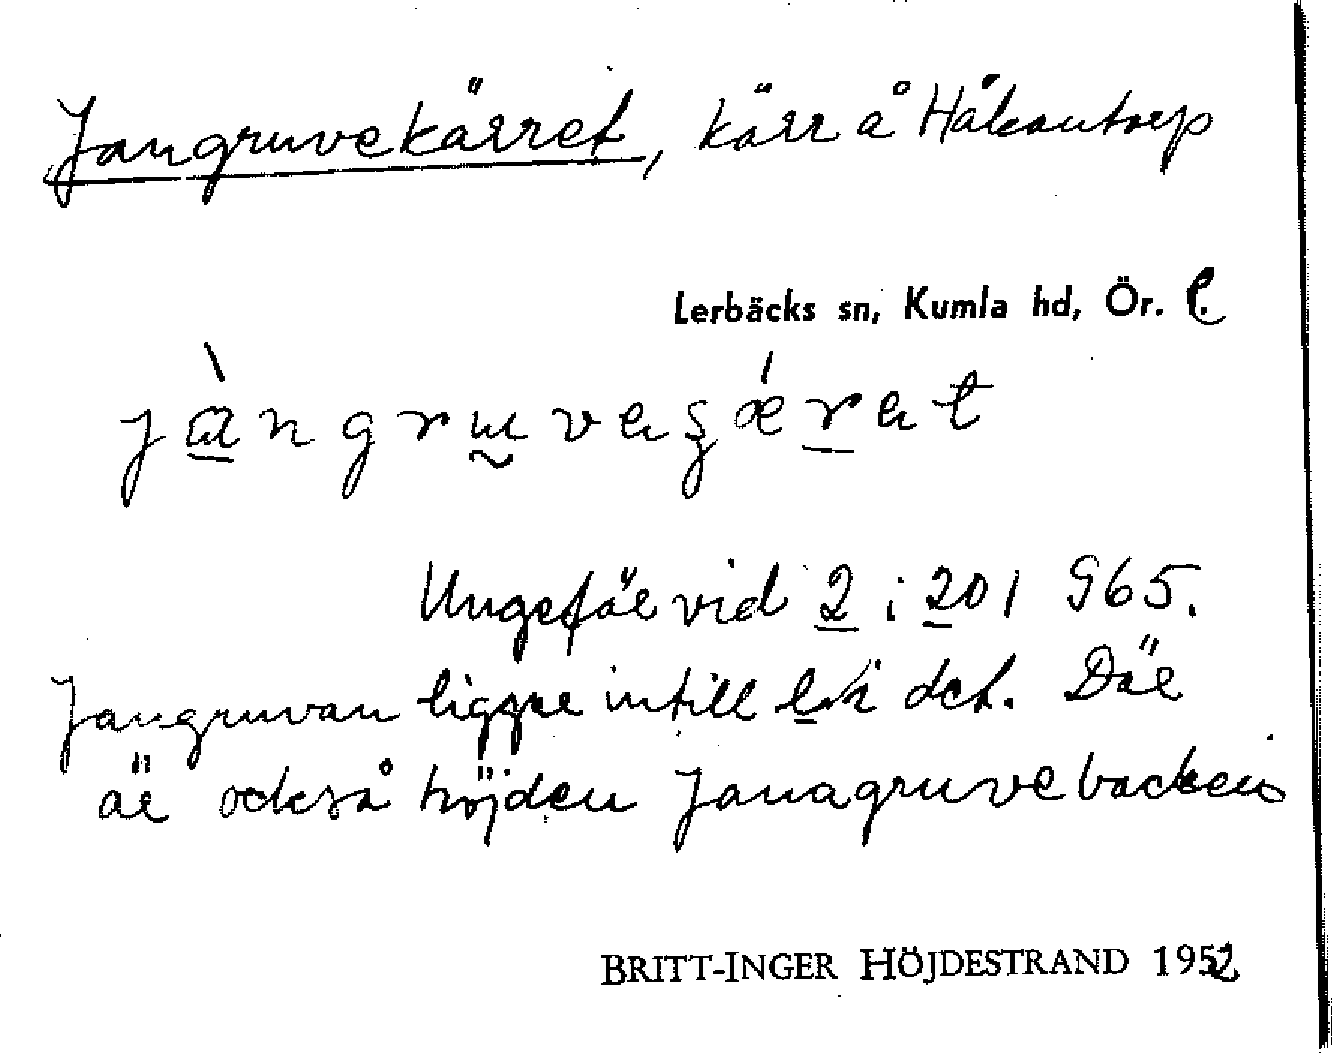 Jangruvekärret, kärr å Håkantorp
Lerbäcks sn, Kumla hd, Ör. l.
jàngruveʂǽret
Ungefär vid 2 i 201 965.
Jangruvan ligger intill det. Där
är också höjden Janagruvebacken
BRITT-INGER HÖJDESTRAND 1952